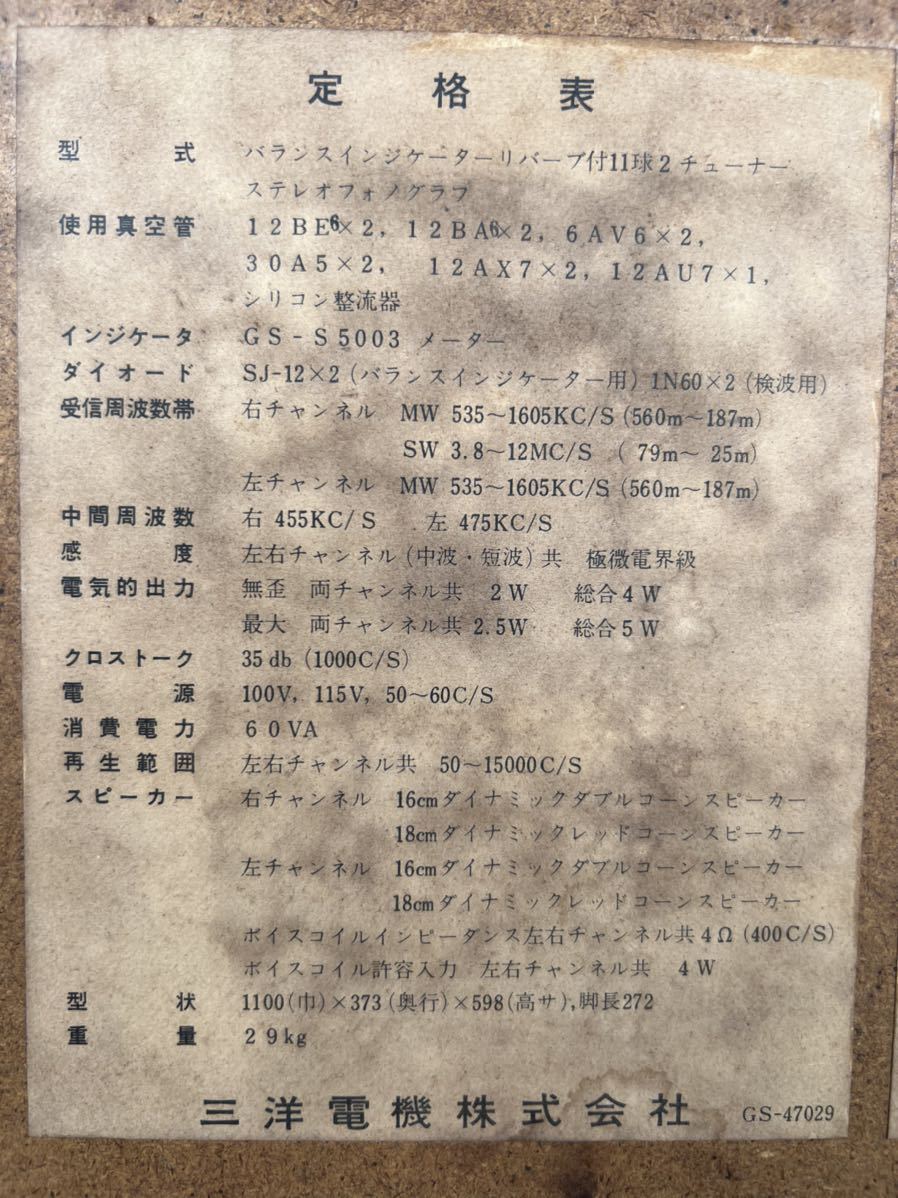 定格表
型式 バランスインジケーターリバーブ付11球2チューナー
ステレオフォノグラフ
使用真空管 12BE6×2, 12BA6×2, 6AV6×2,
30A5×2, 12AX7×2, 12AU7×1,
シリコン整流器
インジケータ GS-S5003 メーター
ダイオード SJ-12×2(バランスインジケーター用) 1N60×2(検波用)
受信周波数帯 右チャンネル MW 535~1605KC/S(560m~187m)
SW 3.8~12MC/S ( 79m~ 25m)
左チャンネル MW 535~1605KC/S(560m~187m)
中間周波数 右 455KC/S 左 475KC/S
感度 左右チャンネル(中波・短波)共 極微電界級
電気的出力 無歪 両チャンネル共 2W 総合4W
最大 両チャンネル共 2.5W 総合5W
クロストーク 35db (1000C/S)
電源 100V, 115V, 50~60C/S
消費電力 60VA
再生範囲 左右チャンネル共 50~15000C/S
スピーカー 右チャンネル 16cmダイナミックダブルコーンスピーカー
18cmダイナミックレッドコーンスピーカー
左チャンネル 16cmダイナミックダブルコーンスピーカー
18cmダイナミックレッドコーンスピーカー
ボイスコイルインピーダンス左右チャンネル共4Ω(400C/S)
ボイスコイル許容入力 左右チャンネル共 4W
型状 1100(巾)×373(奥行)×598(高サ),脚長272
重量 29kg
三洋電機株式会社 GS-47029